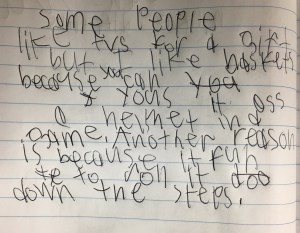 some People
like tvs for a gift
but I like baskets
because you can
yous it ass
a helmet in a
game. Another reason
is because it fun
to roll it
down the steps.